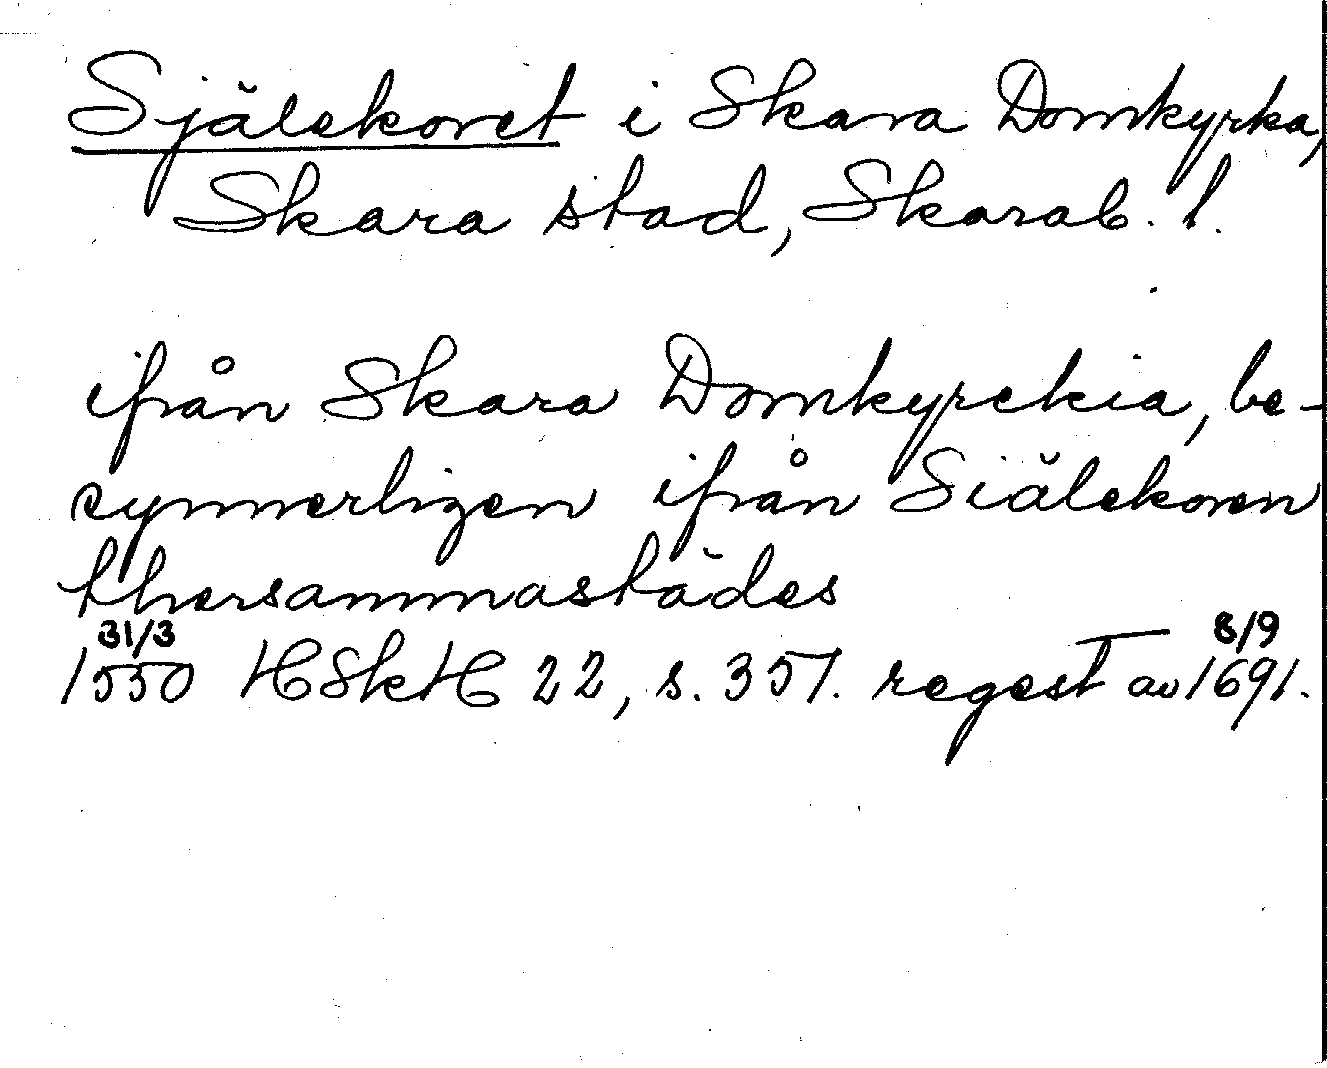 Själekoret i Skara Domkyrka,
Skara stad, Skarab. l.
ifrån Skara Domkyrckia, be-
synnerligen ifrån Siälekoren
thersammastädes
31/3 8/9
1550 HSkH 22, s. 357. regest av 1691.